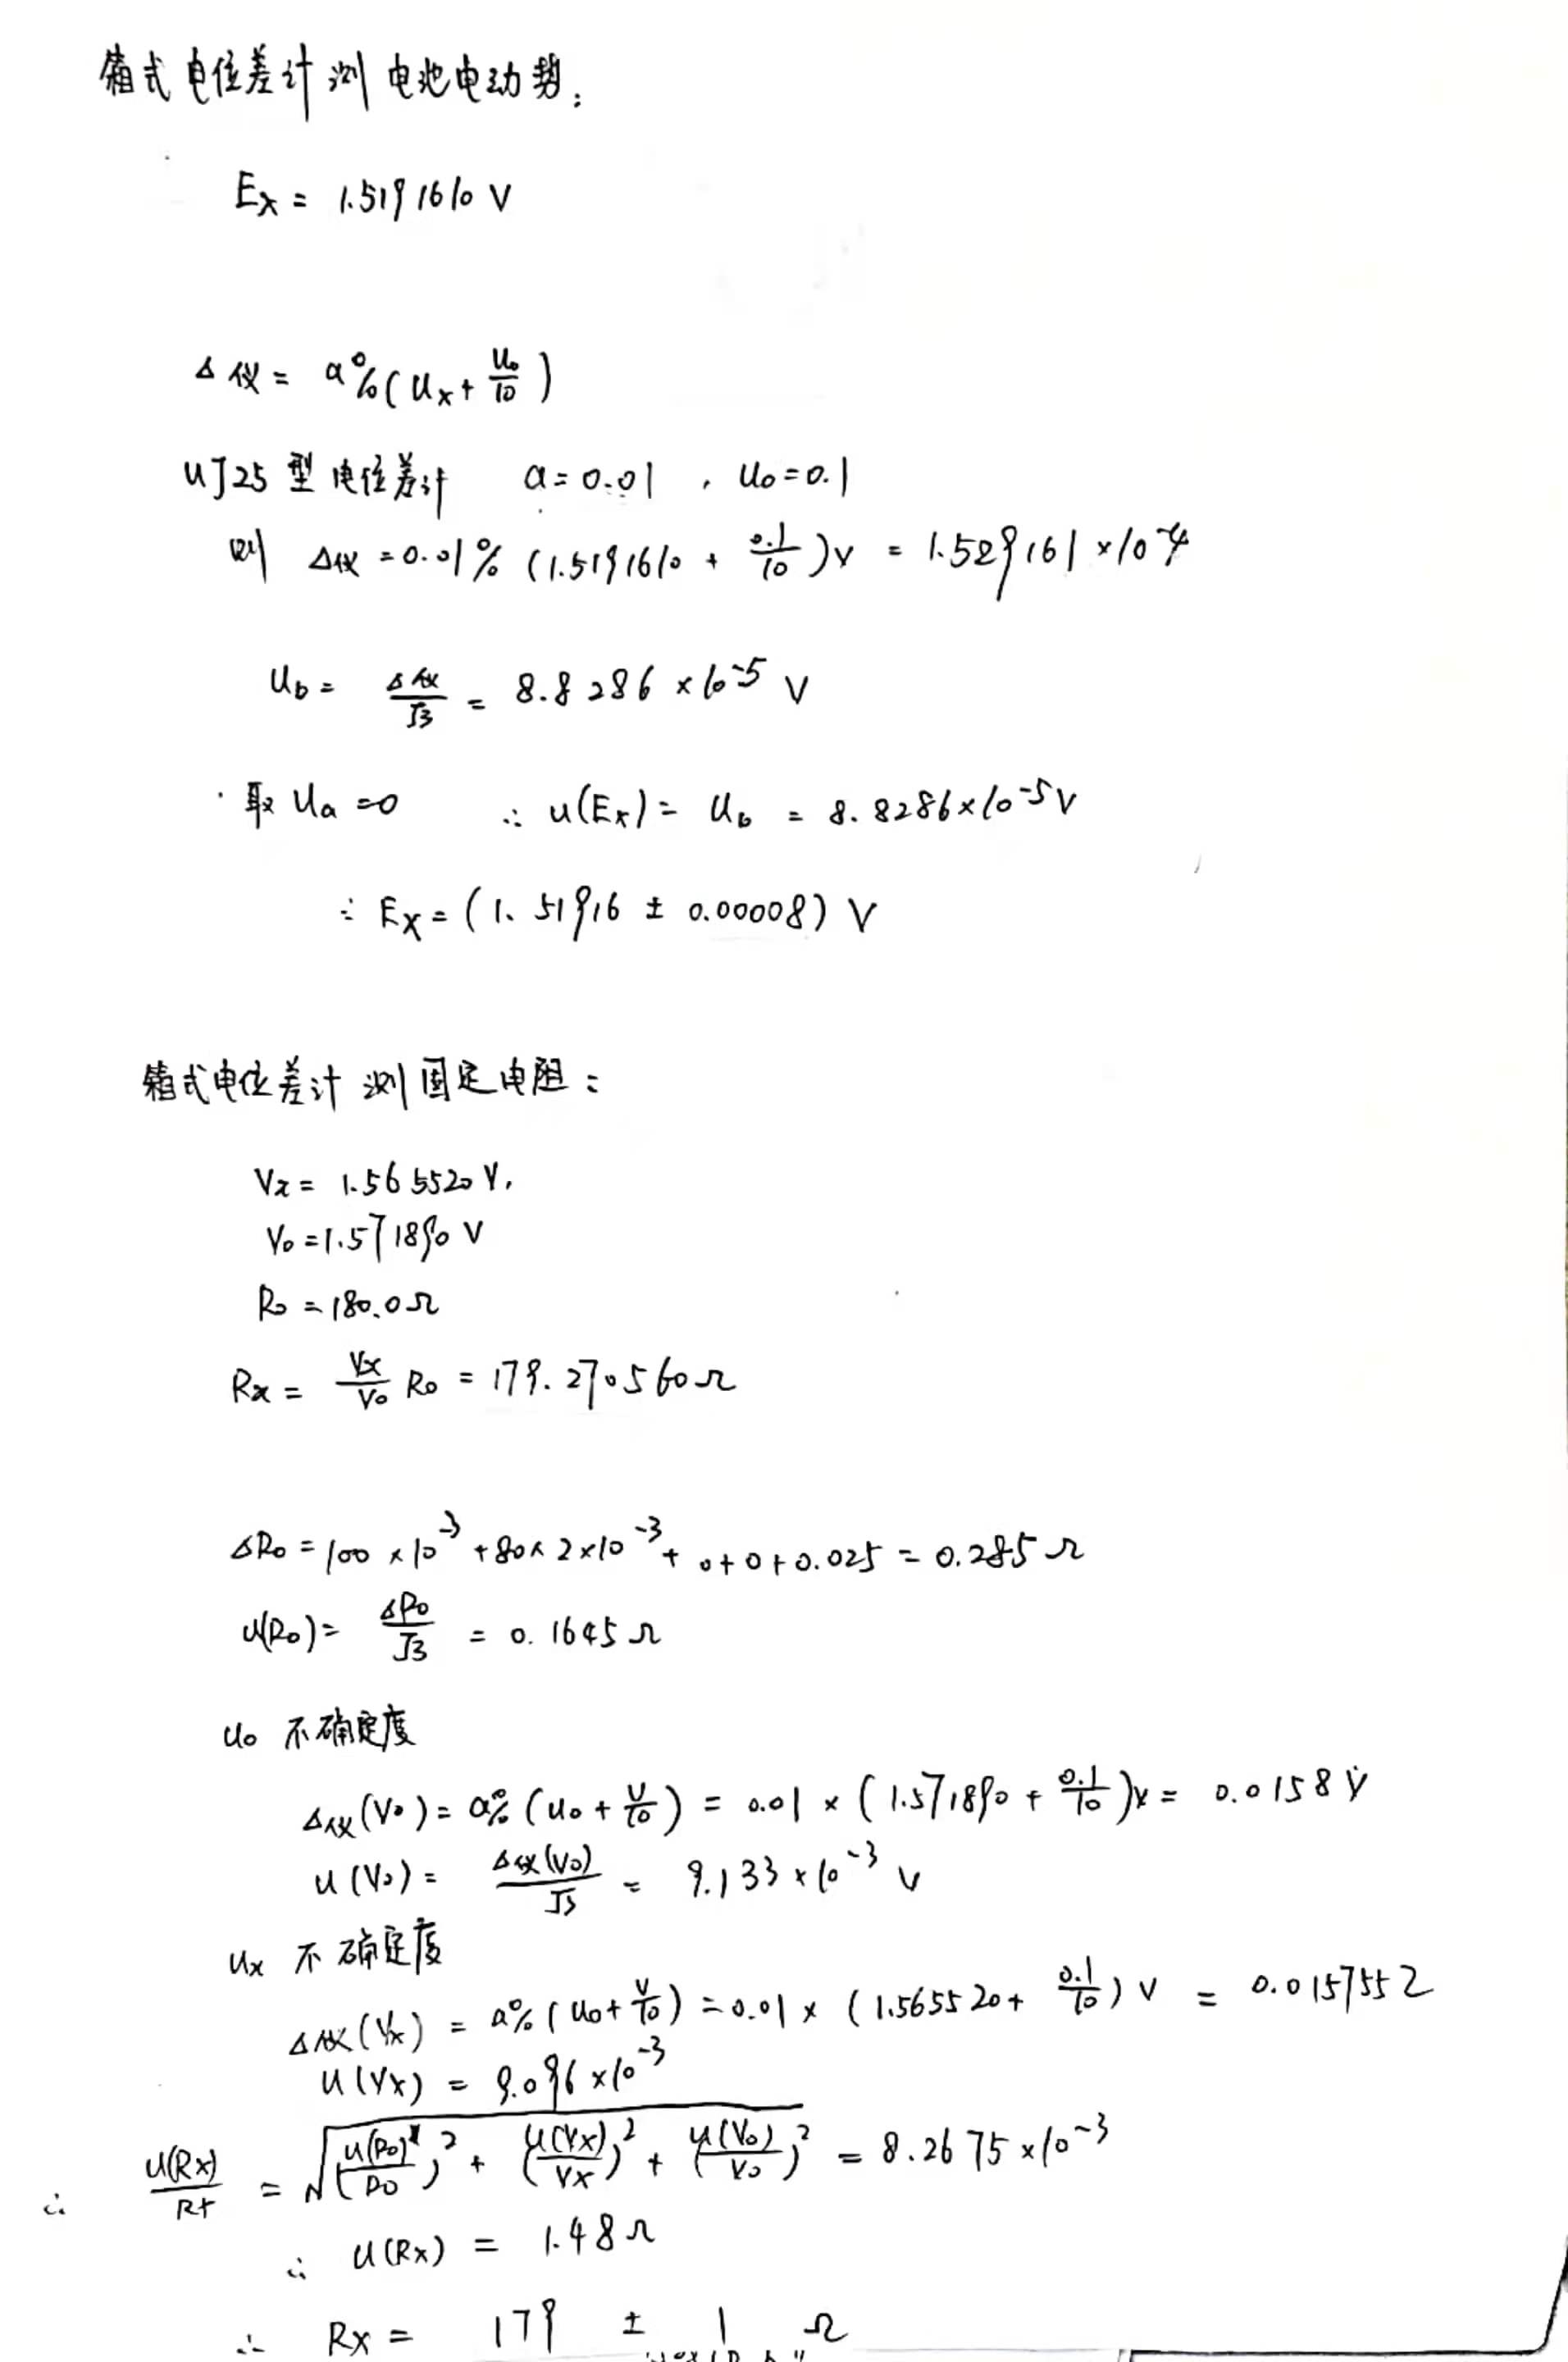 箱式电位差计测电池电动势：
Ex = 1.5191610 V
Δ仪 = a%(Ux + U₀/10)
UJ25型电位差计 a=0.01 , U₀=0.1
则 Δ仪 = 0.01% (1.5191610 + 0.1/10)V = 1.529161×10⁻⁴
Ub = Δ仪/√3 = 8.8286×10⁻⁵ V
取 Ua=0 ∴ u(Ex) = Ub = 8.8286×10⁻⁵V
∴ Ex = (1.51916 ± 0.00008) V
箱式电位差计测固定电阻：
Vx = 1.565520 V,
V₀ = 1.571890 V
R₀ = 180.0Ω
Rx = Vx/V₀ R₀ = 179.270560Ω
ΔR₀ = 100×10⁻³ + 80×2×10⁻³ + 0+0+0.025 = 0.285Ω
u(R₀) = ΔR₀/√3 = 0.1645Ω
U₀ 不确定度
Δ仪(V₀) = a% (U₀ + V/10) = 0.01 × (1.571890 + 0.1/10)V = 0.0158 V
u(V₀) = Δ仪(V₀)/√3 = 9.133×10⁻³ V
Ux 不确定度
Δ仪(Vx) = a% (U₀ + V/10) = 0.01 × (1.565520 + 0.1/10) V = 0.0157552
u(Vx) = 9.096×10⁻³
∴ u(Rx)/Rx = √((u(R₀)/R₀)² + (u(Vx)/Vx)² + (u(V₀)/V₀)²) = 8.2675×10⁻³
∴ u(Rx) = 1.48Ω
∴ Rx = 179 ± 1 Ω